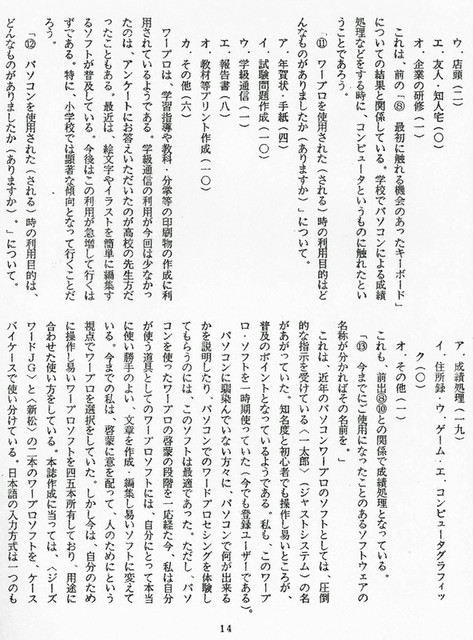 ウ．店頭（二）
エ．友人・知人宅（〇）
オ．企業の研修（一）
これは、前の「⑧　最初に触れる機会のあったキーボード」
についての結果と関係している。学校でパソコンによる成績
処理などをする時に、コンピュータというものに触れたとい
うことであろう。
「⑪　ワープロを使用された（される）時の利用目的はど
んなものがありましたか（ありますか）」について。
ア．年賀状・手紙（四）
イ．試験問題作成（一〇）
ウ．学級通信（一）
エ．報告書（八）
オ．教材等プリント作成（一〇）
カ．その他（六）
ワープロは、学習指導や教科・分掌等の印刷物の作成に利
用されているようである。学級通信の利用が今回は少なかっ
たのは、アンケートにお答えいただいたのが高校の先生方だ
ったこともある。最近は、絵文字やイラストを簡単に編集す
るソフトが普及している。今後はこの利用が急増して行くは
ずである。特に、小学校では顕著な傾向となって行くことだ
ろう。
「⑫　パソコンを使用された（される）時の利用目的は、
どんなものがありましたか（ありますか）。」について。
ア．成績処理（一九）
イ．住所録・ウ．ゲーム・エ．コンピュータグラフィッ
ク（〇）
オ．その他（一）
これも、前出⑧⑩との関係で成績処理となっている。
「⑬　今までにご使用になったことのあるソフトウェアの
名称が分かればその名前を。」
これは、近年のパソコンワープロのソフトとしては、圧倒
的な指示を受けている〈一太郎〉（ジャストシステム）の名
があがっていた。知名度と初心者でも操作し易いところが、
普及のポイントとなっているようである。私も、このワープ
ロ・ソフトを一時期使っていた（今でも登録ユーザーである）。
パソコンに馴染んでいない方々に、パソコンで何が出来る
かを説明したり、パソコンでのワードプロセシングを体験し
てもらうのには、このソフトは最適であった。ただし、パソ
コンを使ったワープロの啓蒙の段階を一応経た今、私は自分
が使う道具としてのワープロソフトには、自分にとって本当
に使い勝手のよい、文章を作成、編集し易いソフトに変えて
いる。今までの私は、啓蒙に意を配って、人のためにという
視点でワープロを選択をしていた。しかし今は、自分のため
に操作し易いワープロソフトを四五本所有しており、用途に
合わせた使い方をしている。本誌作成に当っては、〈ジーズ
ワードＪＧ〉と〈新松〉の二本のワープロソフトを、ケース
バイケースで使い分けている。日本語の入力方式は一つのも
14